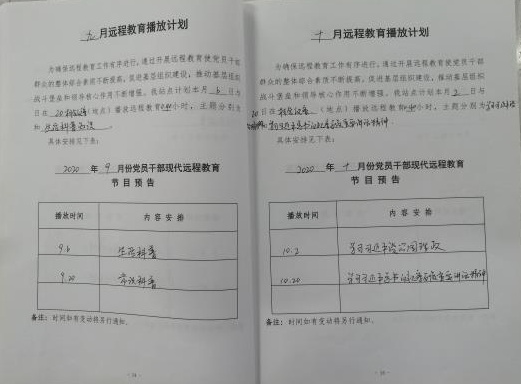 九 月远程教育播放计划
为确保远程教育工作有序进行,通过开展远程教育使党员干部
群众的整体综合素质不断提高,促进基层组织建设,推动基层组织
战斗堡垒和领导核心作用不断增强。我站点计划本月 6 日与
20 日在 (地点)播放远程教育 小时,主题分别为
和
具体安排见下表:
2020 年 9 月份党员干部现代远程教育
节 目 预 告
播放时间 内 容 安 排
9.6 生活科普
9.20 常识科普
备注:时间如有变动将另行通知。
十 月远程教育播放计划
为确保远程教育工作有序进行,通过开展远程教育使党员干部
群众的整体综合素质不断提高,促进基层组织建设,推动基层组织
战斗堡垒和领导核心作用不断增强。我站点计划本月 2 日与
20 日在 (地点)播放远程教育 小时,主题分别为
具体安排见下表:
2020 年 十 月份党员干部现代远程教育
节 目 预 告
播放时间 内 容 安 排
10.2 学习习近平谈治国理政
10.20 学习习近平总书记
备注:时间如有变动将另行通知。